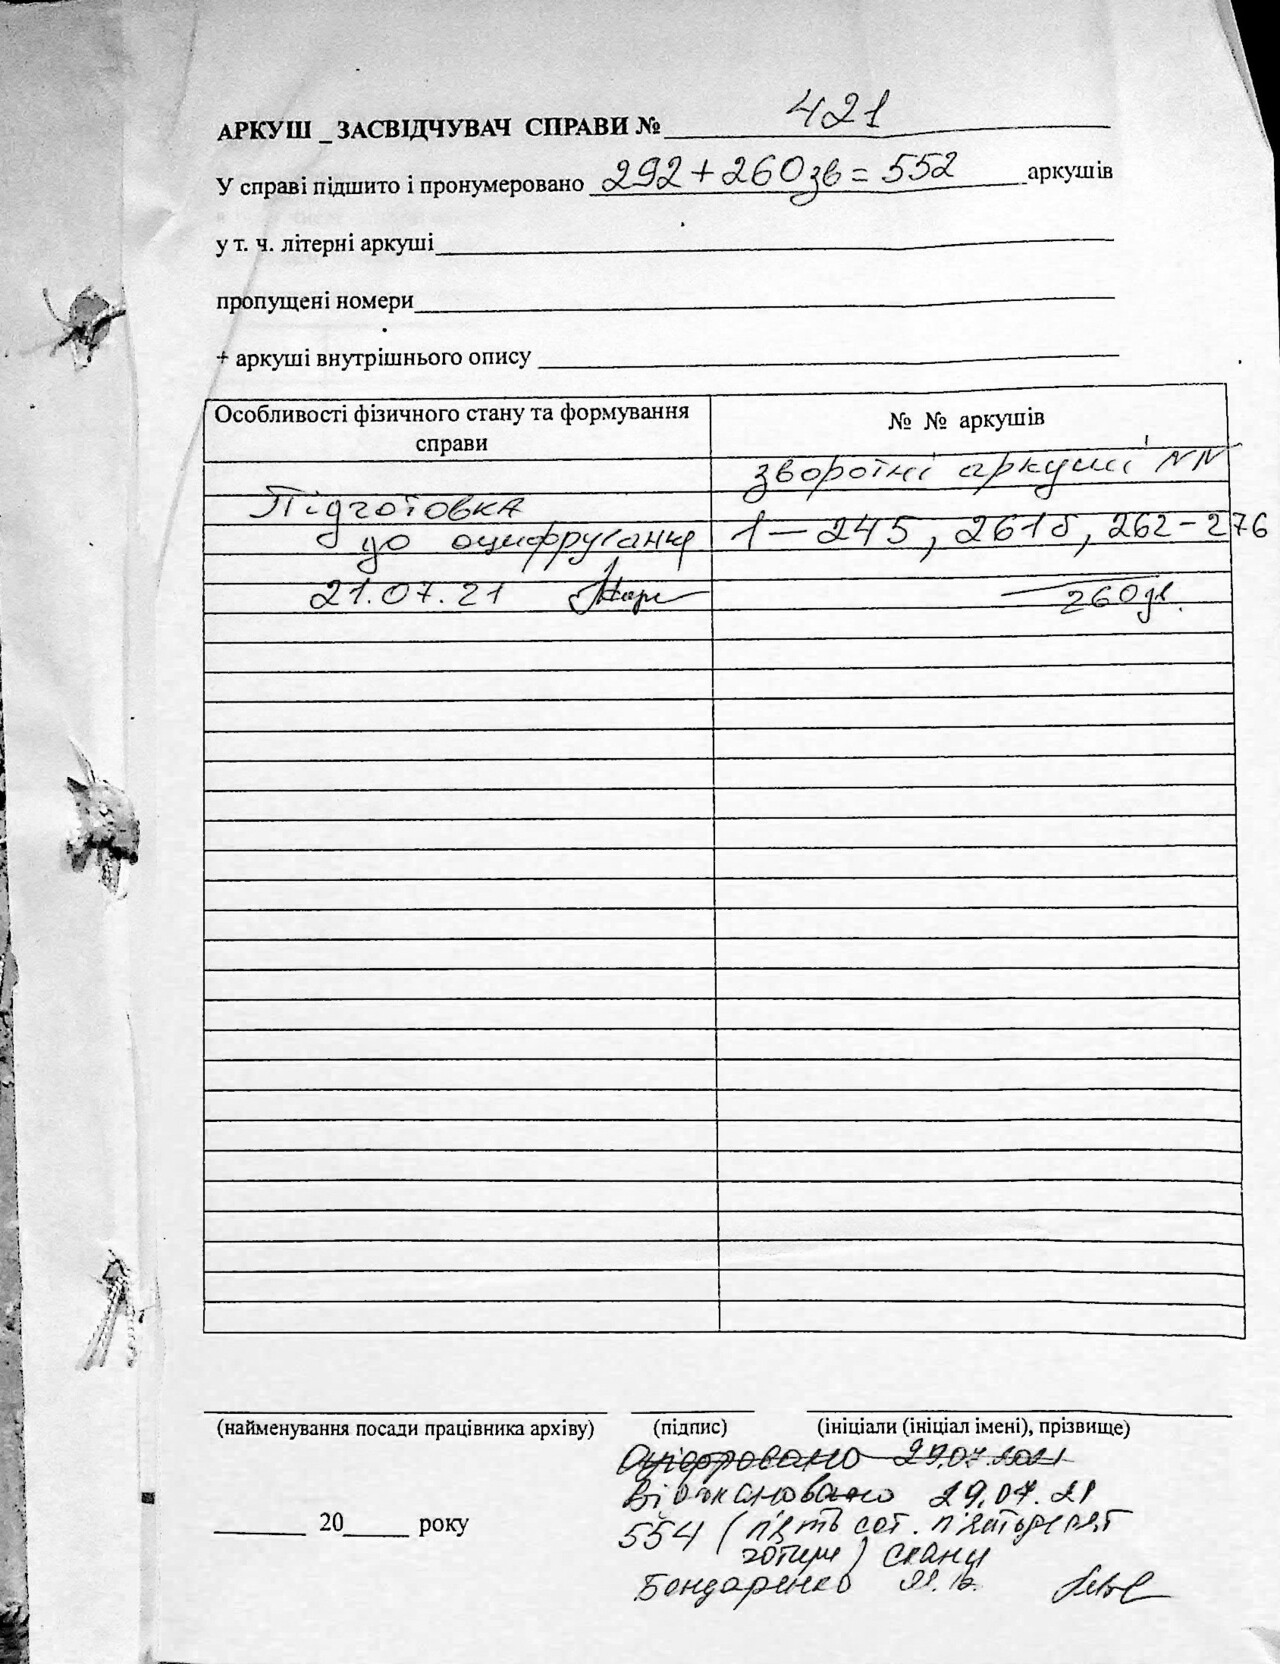 АРКУШ _ ЗАСВІДЧУВАЧ СПРАВИ № 421
У справі підшито і пронумеровано 292 + 260 зв = 552 аркушів
у т. ч. літерні аркуші
пропущені номери
+ аркуші внутрішнього опису
Особливості фізичного стану та формування справи
№ № аркушів
зворотні аркуші NN
Підготовка
до оцифрування
1 – 245, 261б, 262 – 276
21.07.21
260
(найменування посади працівника архіву) (підпис) (ініціали (ініціал імені), прізвище)
Оцифровано 29.07.2021
Відскановано 29.07.21
554 (п'ять сот. п'ятдесят
чотири) скани
Бондаренко
20 року